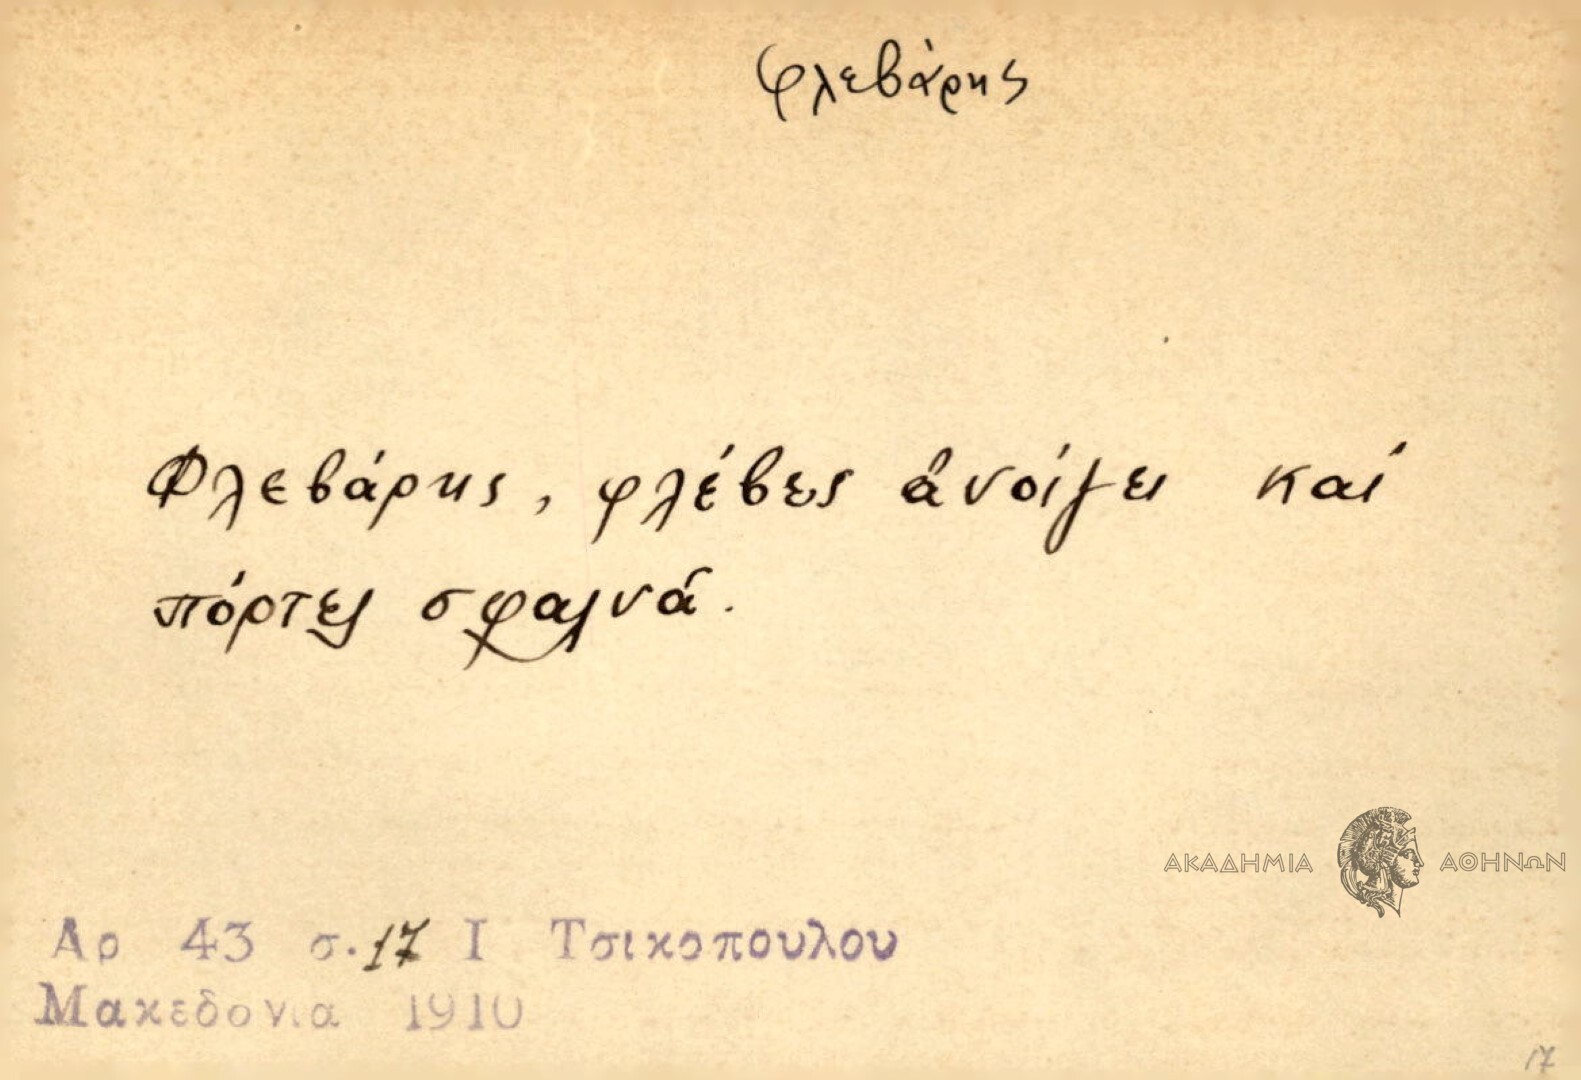 φλεβάρης
Φλεβάρης, φλέβες ἀνοίγει καί
πόρτες σφαλνᾶ.
ΑΚΑΔΗΜΙΑ ΑΘΗΝΩΝ
Αρ 43 σ. 17 Ι Τσικοπουλου
Μακεδονια 1910
17